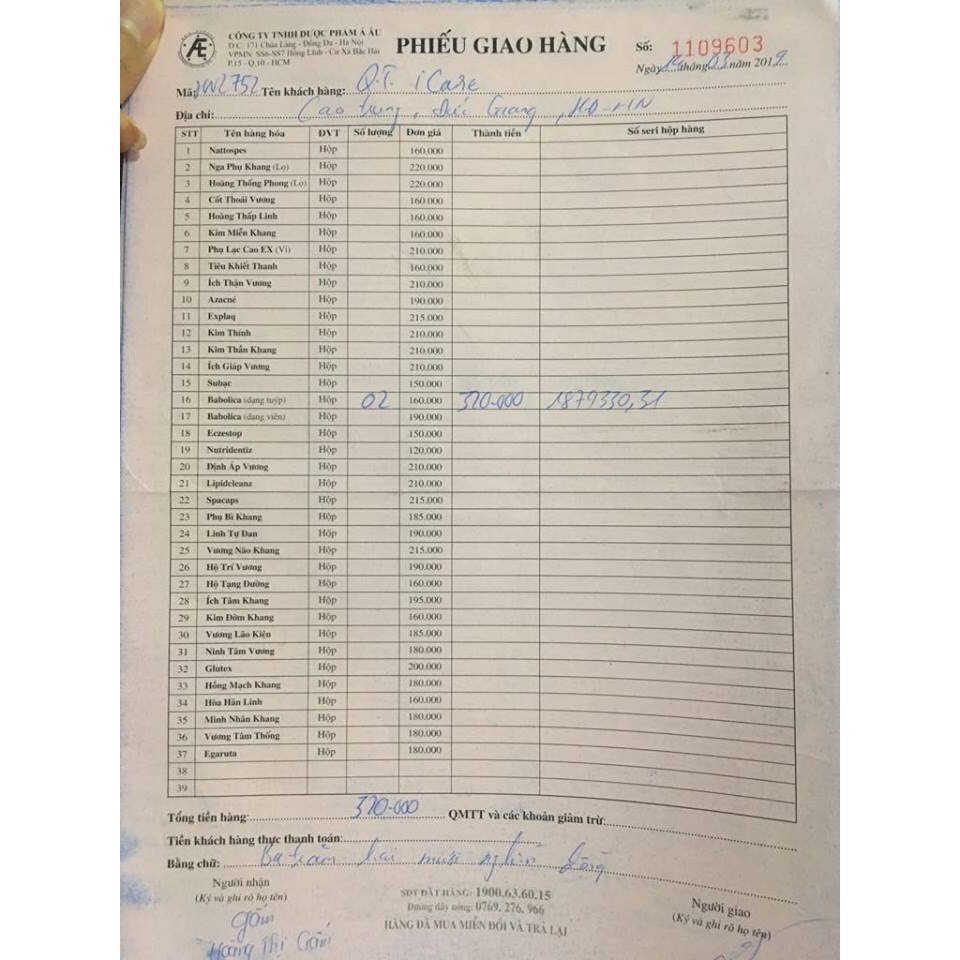 Æ
CÔNG TY TNHH DƯỢC PHẨM Á ÂU
Đ/C: 171 Chùa Láng - Đống Đa - Hà Nội
VPMN: SS6-SS7 Hồng Lĩnh - Cư Xá Bắc Hải
P.15 - Q.10 - HCM
PHIẾU GIAO HÀNG
Số: 1109603
Ngày 14 tháng 03 năm 2019
Mã: JW2752 Tên khách hàng: Q.T. iCare
Địa chỉ: Cao trung, Đức Giang, HĐ-HN
STT Tên hàng hóa ĐVT Số lượng Đơn giá Thành tiền Số seri hộp hàng
1 Nattospes Hộp 160.000
2 Nga Phụ Khang (Lọ) Hộp 220.000
3 Hoàng Thống Phong (Lọ) Hộp 220.000
4 Cốt Thoái Vương Hộp 160.000
5 Hoàng Thấp Linh Hộp 160.000
6 Kim Miễn Khang Hộp 160.000
7 Phụ Lạc Cao EX (Vỉ) Hộp 210.000
8 Tiêu Khiết Thanh Hộp 160.000
9 Ích Thận Vương Hộp 210.000
10 Azacné Hộp 190.000
11 Explaq Hộp 215.000
12 Kim Thính Hộp 210.000
13 Kim Thần Khang Hộp 210.000
14 Ích Giáp Vương Hộp 210.000
15 Subạc Hộp 150.000
16 Babolica (dạng tuýp) Hộp 02 160.000 320.000 1879330,31
17 Babolica (dạng viên) Hộp 190.000
18 Eczestop Hộp 150.000
19 Nutridentiz Hộp 120.000
20 Định Áp Vương Hộp 210.000
21 Lipidcleanz Hộp 210.000
22 Spacaps Hộp 215.000
23 Phụ Bì Khang Hộp 185.000
24 Linh Tự Đan Hộp 190.000
25 Vương Não Khang Hộp 215.000
26 Hộ Trí Vương Hộp 190.000
27 Hộ Tạng Đường Hộp 160.000
28 Ích Tâm Khang Hộp 195.000
29 Kim Đờm Khang Hộp 160.000
30 Vương Lão Kiện Hộp 185.000
31 Ninh Tâm Vương Hộp 180.000
32 Glutex Hộp 200.000
33 Hồng Mạch Khang Hộp 180.000
34 Hòa Hãn Linh Hộp 160.000
35 Minh Nhãn Khang Hộp 180.000
36 Vương Tâm Thống Hộp 180.000
37 Egaruta Hộp 180.000
38
39
Tổng tiền hàng: 320.000 QMTT và các khoản giảm trừ:
Tiền khách hàng thực thanh toán:
Bằng chữ: Ba trăm hai mươi nghìn đồng
Người nhận
(Ký và ghi rõ họ tên)
Gấm
Hoàng Thị Gấm
SĐT ĐẶT HÀNG: 1900.63.60.15
Đường dây nóng: 0769. 276. 966
HÀNG ĐÃ MUA MIỄN ĐỔI VÀ TRẢ LẠI
Người giao
(Ký và ghi rõ họ tên)